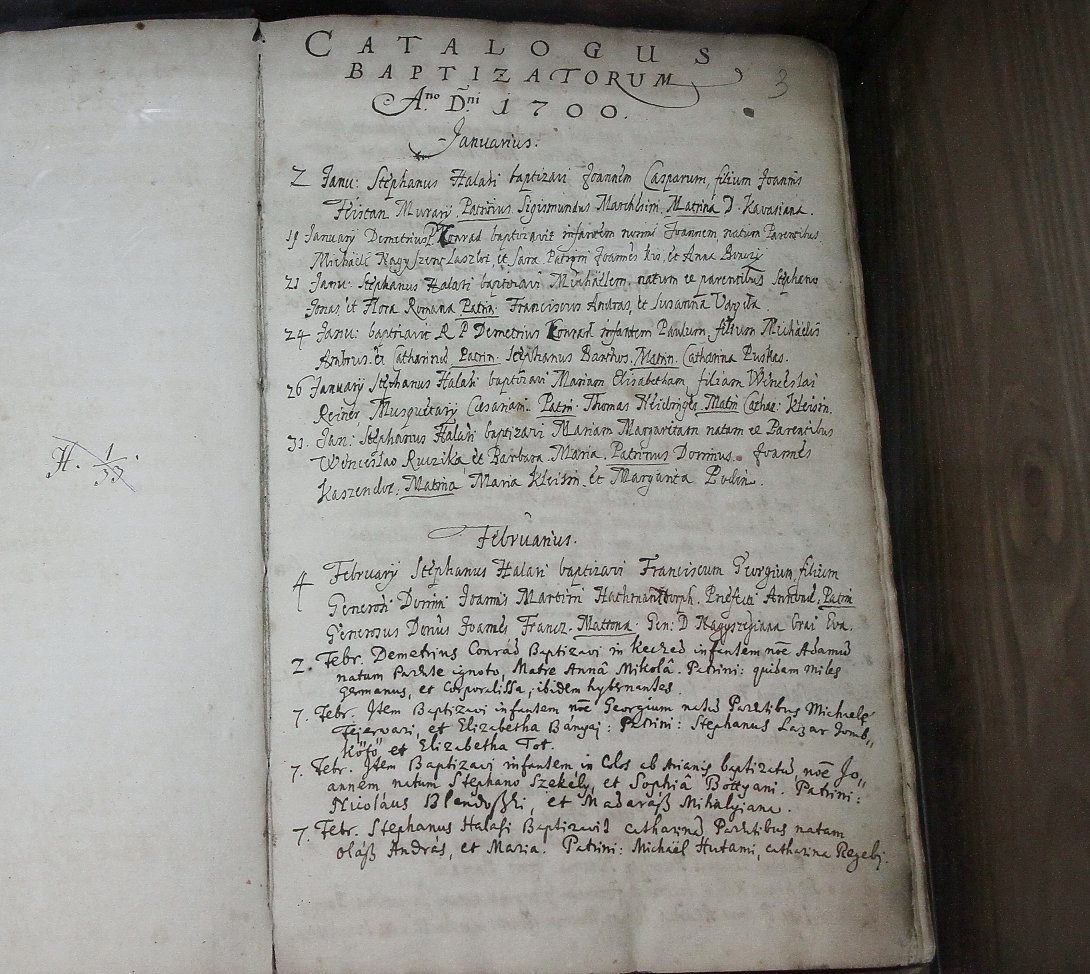 CATALOGUS
BAPTIZATORUM
3
Ano Dni 1700.
Januarius.
2 Janu: Stephanus Halasi baptizavi Joannem Casparum, filium Joannis
Murarij. Patrinus Sigismundus Matrina D. Kavasiana.
19 January Demetrius Conrad baptizavit infantem nomine Joannem natum Parentibus
Michaële Nagy et Sara. Patrini Joannes Kis, et Anna
21 Janu: Stephanus Halasi baptizavi Michäelem natum ex parentibus Stephano
Jonas et Flora Romana Patrin: Franciscus Andras, et Susanna Vargita.
24 Janu: baptizavit R P Demetrius Conrad infantem Paulum, filium Michäelis
Ambrus et Catharinae, Patrin: Stephanus Barthos. Matrin. Catharina Puskas.
26 January Stephanus Halasi baptizavi Mariam Elisabetham, filiam Winceslai
Reiner Musquetarij Caesariani. Patri: Thomas Matri Catha: Kleisin.
31. Jan: Stephanus Halasi baptizavi Mariam Margaretam natam ex Parentibus
Winceslao Ruczika et Barbara Maria. Patrinus Dominus Joannes
Kaszendor. Matrina Maria Kleisin et Margarita Pudin.
Februarius.
4 February Stephanus Halasi baptizavi Franciscum Georgium, filium
Generosi Domini Joannis Martini Praefecti Annonae, Patrin
Generosus Donus Joannes Francz. Mattona. Gen: D Nagyszegiana Brai Eva.
2. Febr. Demetrius Conrád Baptizavi in Keczed infantem noe Adamum
natum Parente ignoto, Matre Annâ Mikolâ. Patrini: quidam miles
germanus, et Corporalissa, ibidem hybernantes.
7. Febr. Item Baptizavi infantem noe Georgium natum Parentibus Michaele
Fejervari, et Elizabetha Bányai: Patrini: Stephanus Lazar Domb„
Köfő et Elizabetha Tot.
7. Febr. Item Baptizavi infantem in Colos ab Arianis baptizatum, noe Jo„
annem natum Stephano Szekely, et Sophiâ Bottyani. Patrini:
Nicoláus et Madaráß Mihalyiana.
7. Febr. Stephanus Halasi Baptizavit Catharinam Parentibus natam
oláß András, et Maria. Patrini: Michäel Hutami, Catharina Regebj.
H. 1/33.